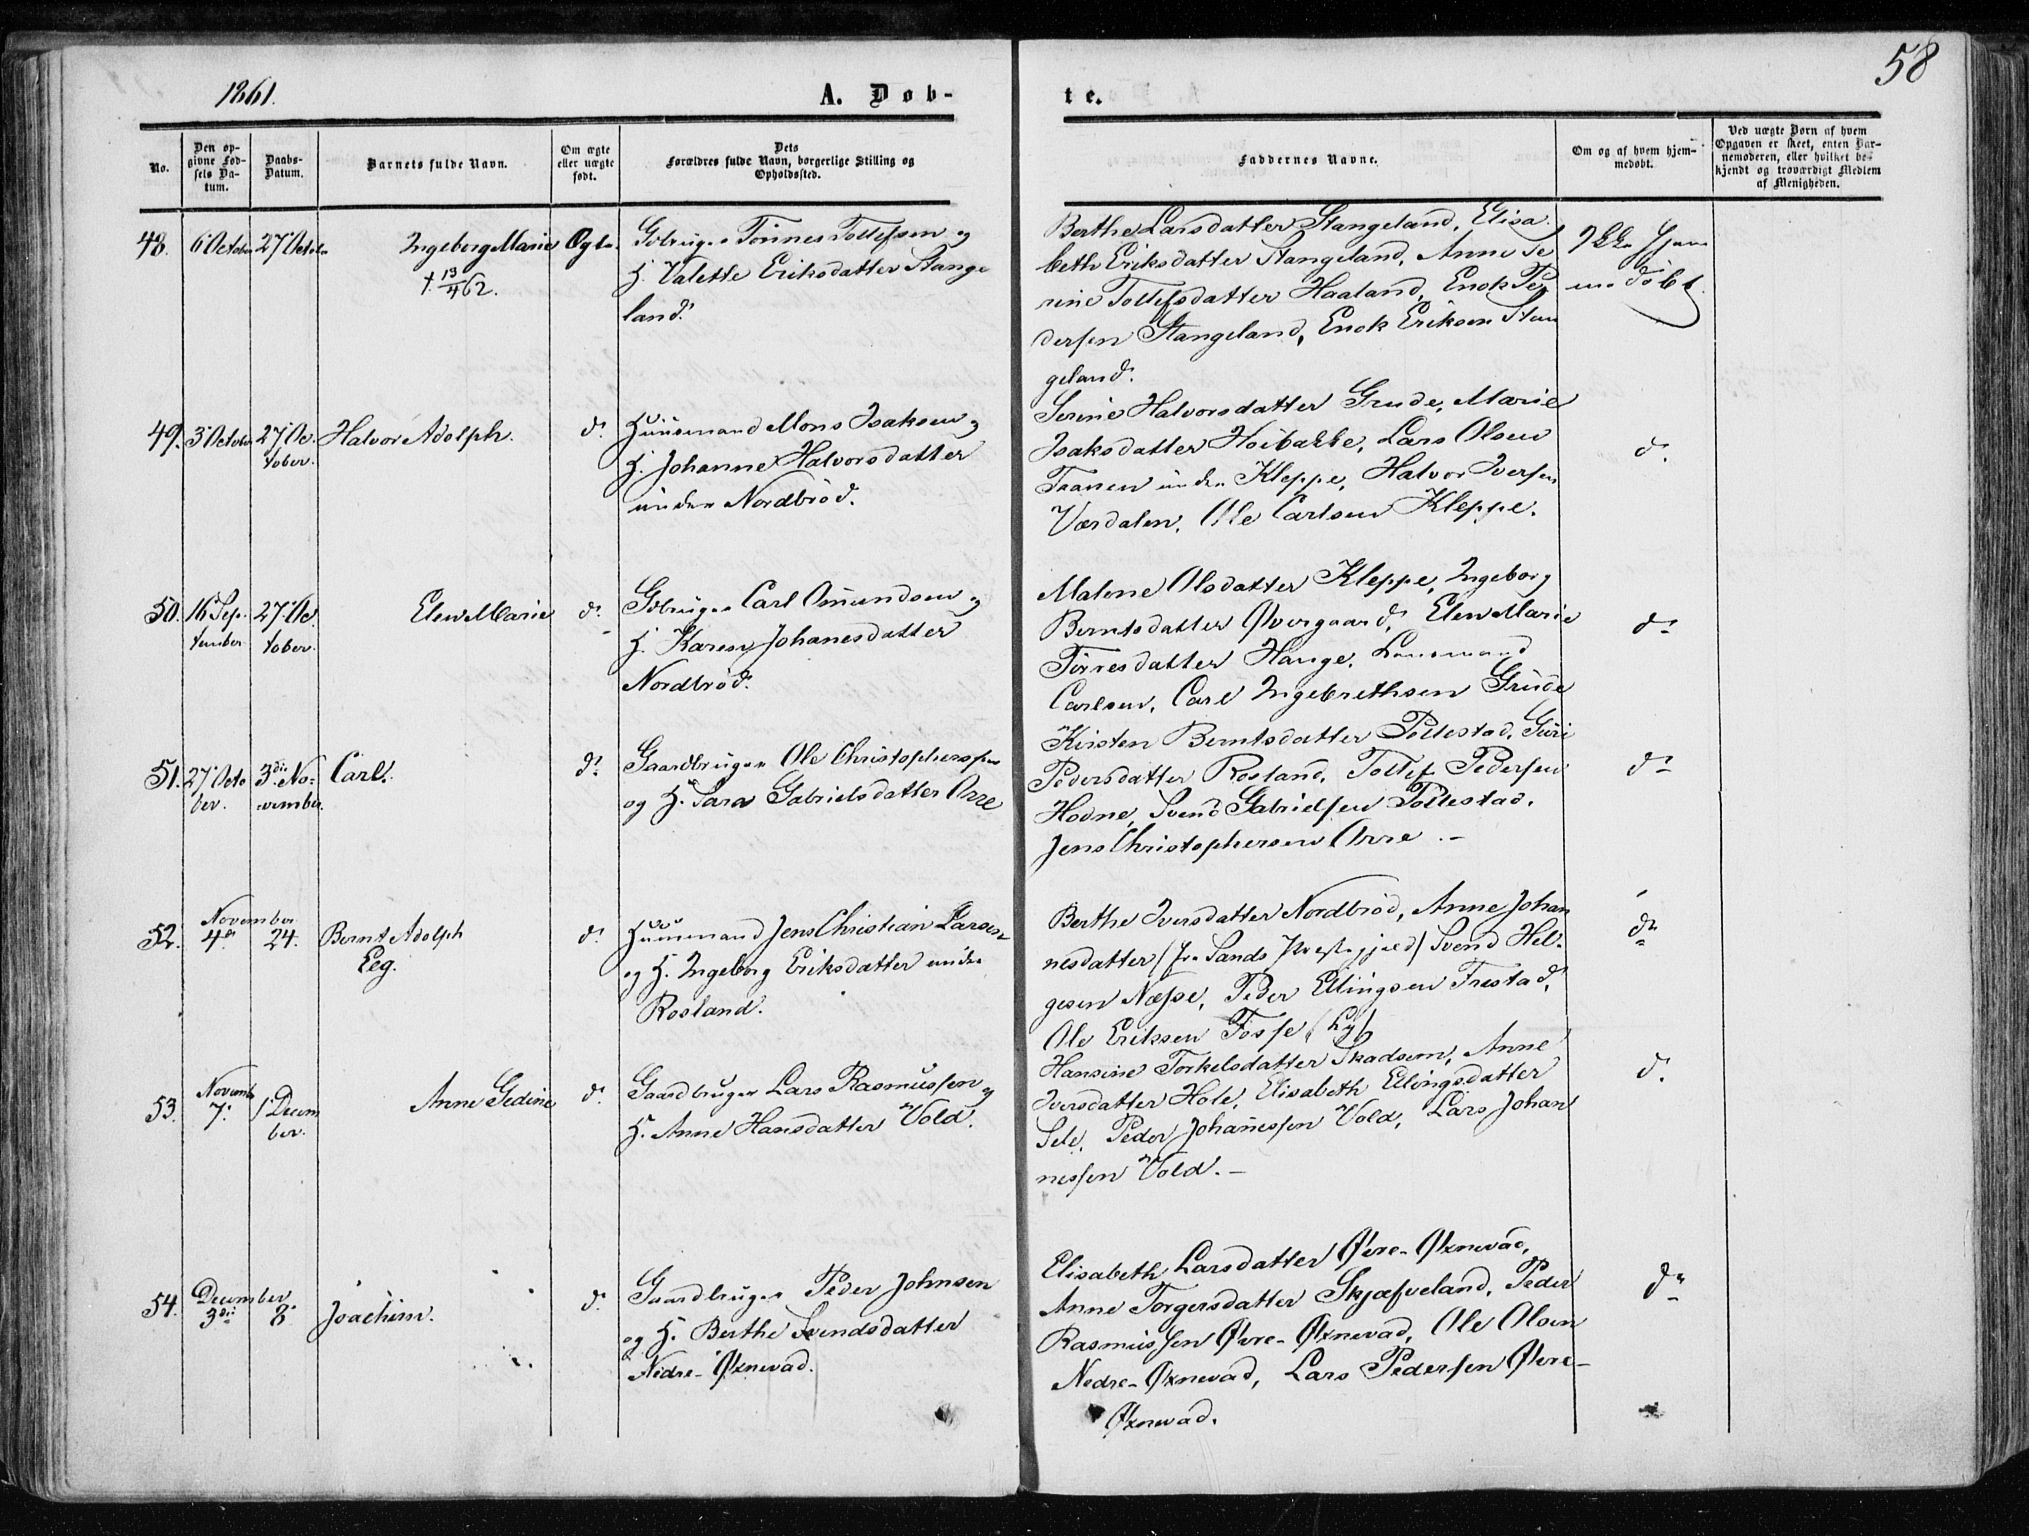 1861.
A. Døb-
te.
58
No.
Den op-
givne Fød-
sels Da-
tum.
Daabs-
Datum.
Barnets fulde Navn.
Om ægte
eller uægte
født.
Dets
Forældres fulde Navn, borgerlige Stilling og
Opholdssted.
Faddernes Navne.
Om og af hvem hjem-
medøbt.
Ved uægte Børn af hvem
Opgaven er skeet, enten Bar-
nemoderen, eller hvilket be-
kjendt og troværdigt Medlem
af Menigheden.
48. 6 October 27 October Ingeborg Marie Ægte
† 13/4 62.
Gbruger Tönnes Tollefsen og
H. Valette Eriksdatter Stange
land.
Berthe Larsdatter Stangeland, Elisa
beth Eriksdatter Stangeland, Anne Se
rine Tollefsdatter Haaland, Enok Pe
dersen Stangeland, Enok Eriksen Stan
geland.
Ikke hjem
me döbt.
49. 3 October 27 Oc
tober. Halvor Adolph. d.
Huusmand Mons Isaksen og
H. Johanne Halvorsdatter
under Nordbröd.
Serine Halvorsdatter Grude, Marie
Isaksdatter Hoibakke, Lars Olsen
Taanen under Kleppe, Halvor Iversen
Værdalen, Ole Carlsen Kleppe.
d.
50. 16 Sep
tember 27 Oc
tober. Elen Marie d.
Gbruger Carl Omundsen og
H. Karen Johanesdatter
Nordbröd.
Malene Olsdatter Kleppe, Ingeborg
Berntsdatter Øvergaard, Elen Marie
Törresdatter Hauge, Lensmand
Carlsen, Carl Ingebrethsen Grude
d.
51. 27 Octo
ber. 3die No-
vember. Carl. d.
Gaardbruger Ole Christophersen
og H. Sara Gabrielsdatter Orre
Kirsten Berntsdatter Pollestad, Guri
Pedersdatter Rosland, Tollef Pedersen
Hodne, Svend Gabrielsen Pollestad,
Jens Christophersen Orre. –
d.
52. November
4de 24. Bernt Adolph
Eeg. d.
Huusmand Jens Christian Larsen
og H. Ingeborg Eriksdatter under
Rosland.
Berthe Iversdatter Nordbröd, Anne Johan
nesdatter (fra Sands Præstegjæld) Svend Hel-
gesen Næsse, Peder Ellingsen Frestad,
Ole Eriksen Fosse (Ly)
d.
53. Novembr
7. 1 Decem
ber. Anne Gedine d.
Gaardbruger Lars Rasmussen og
H. Anne Hansdatter Vold.
Hansine Torkelsdatter Skadsem, Anne
Iversdatter Hole, Elisabeth Ellingsdatter
Sele, Peder Johannessen Vold, Lars Johan
nessen Vold. –
d.
54. December
3die 8. Joachim. d.
Gaardbruger Peder Johnsen
og H. Berthe Svendsdatter
Nedre-Øxnevad.
Elisabeth Larsdatter Øvre-Øxnevad,
Anne Torgersdatter Skjæfveland, Peder
Rasmussen Øvre-Øxnevad, Ole Olsen
Nedre-Øxnevad, Lars Pedersen Øvre-
Øxnevad.
d.